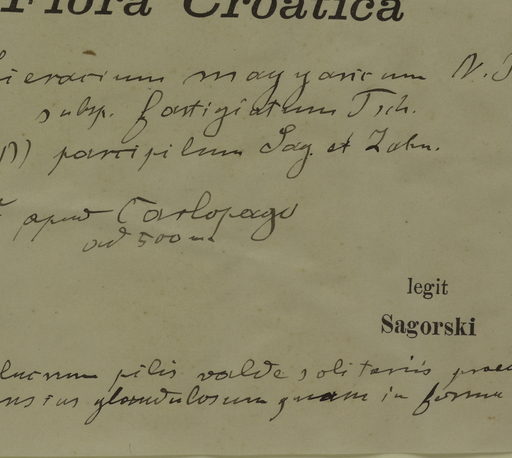 Flora Croatica
ieracium magyaricum N. P
subsp. fastigiatum Tsch.
parcipilum Sag. et Zahn.
apud Carlopago
ad 500 m
legit
Sagorski
pilis valde solitariis
glandulosum quam in forma